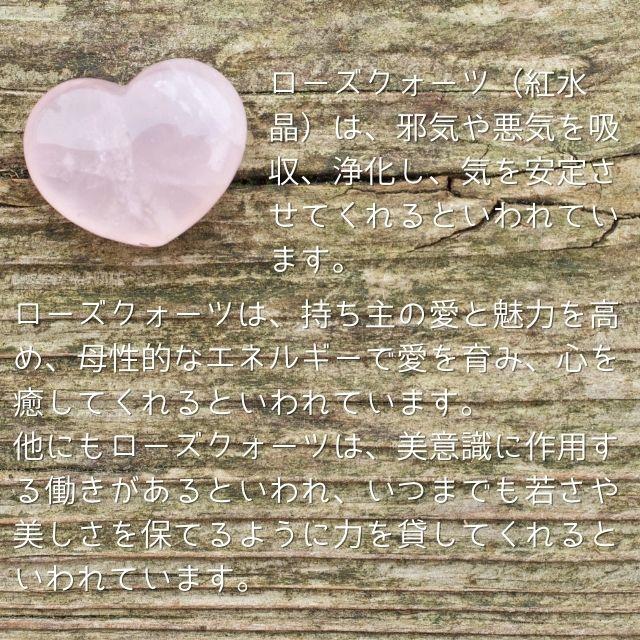 ローズクォーツ（紅水
晶）は、邪気や悪気を吸
収、浄化し、気を安定さ
せてくれるといわれてい
ます。
ローズクォーツは、持ち主の愛と魅力を高
め、母性的なエネルギーで愛を育み、心を
癒してくれるといわれています。
他にもローズクォーツは、美意識に作用す
る働きがあるといわれ、いつまでも若さや
美しさを保てるように力を貸してくれると
いわれています。